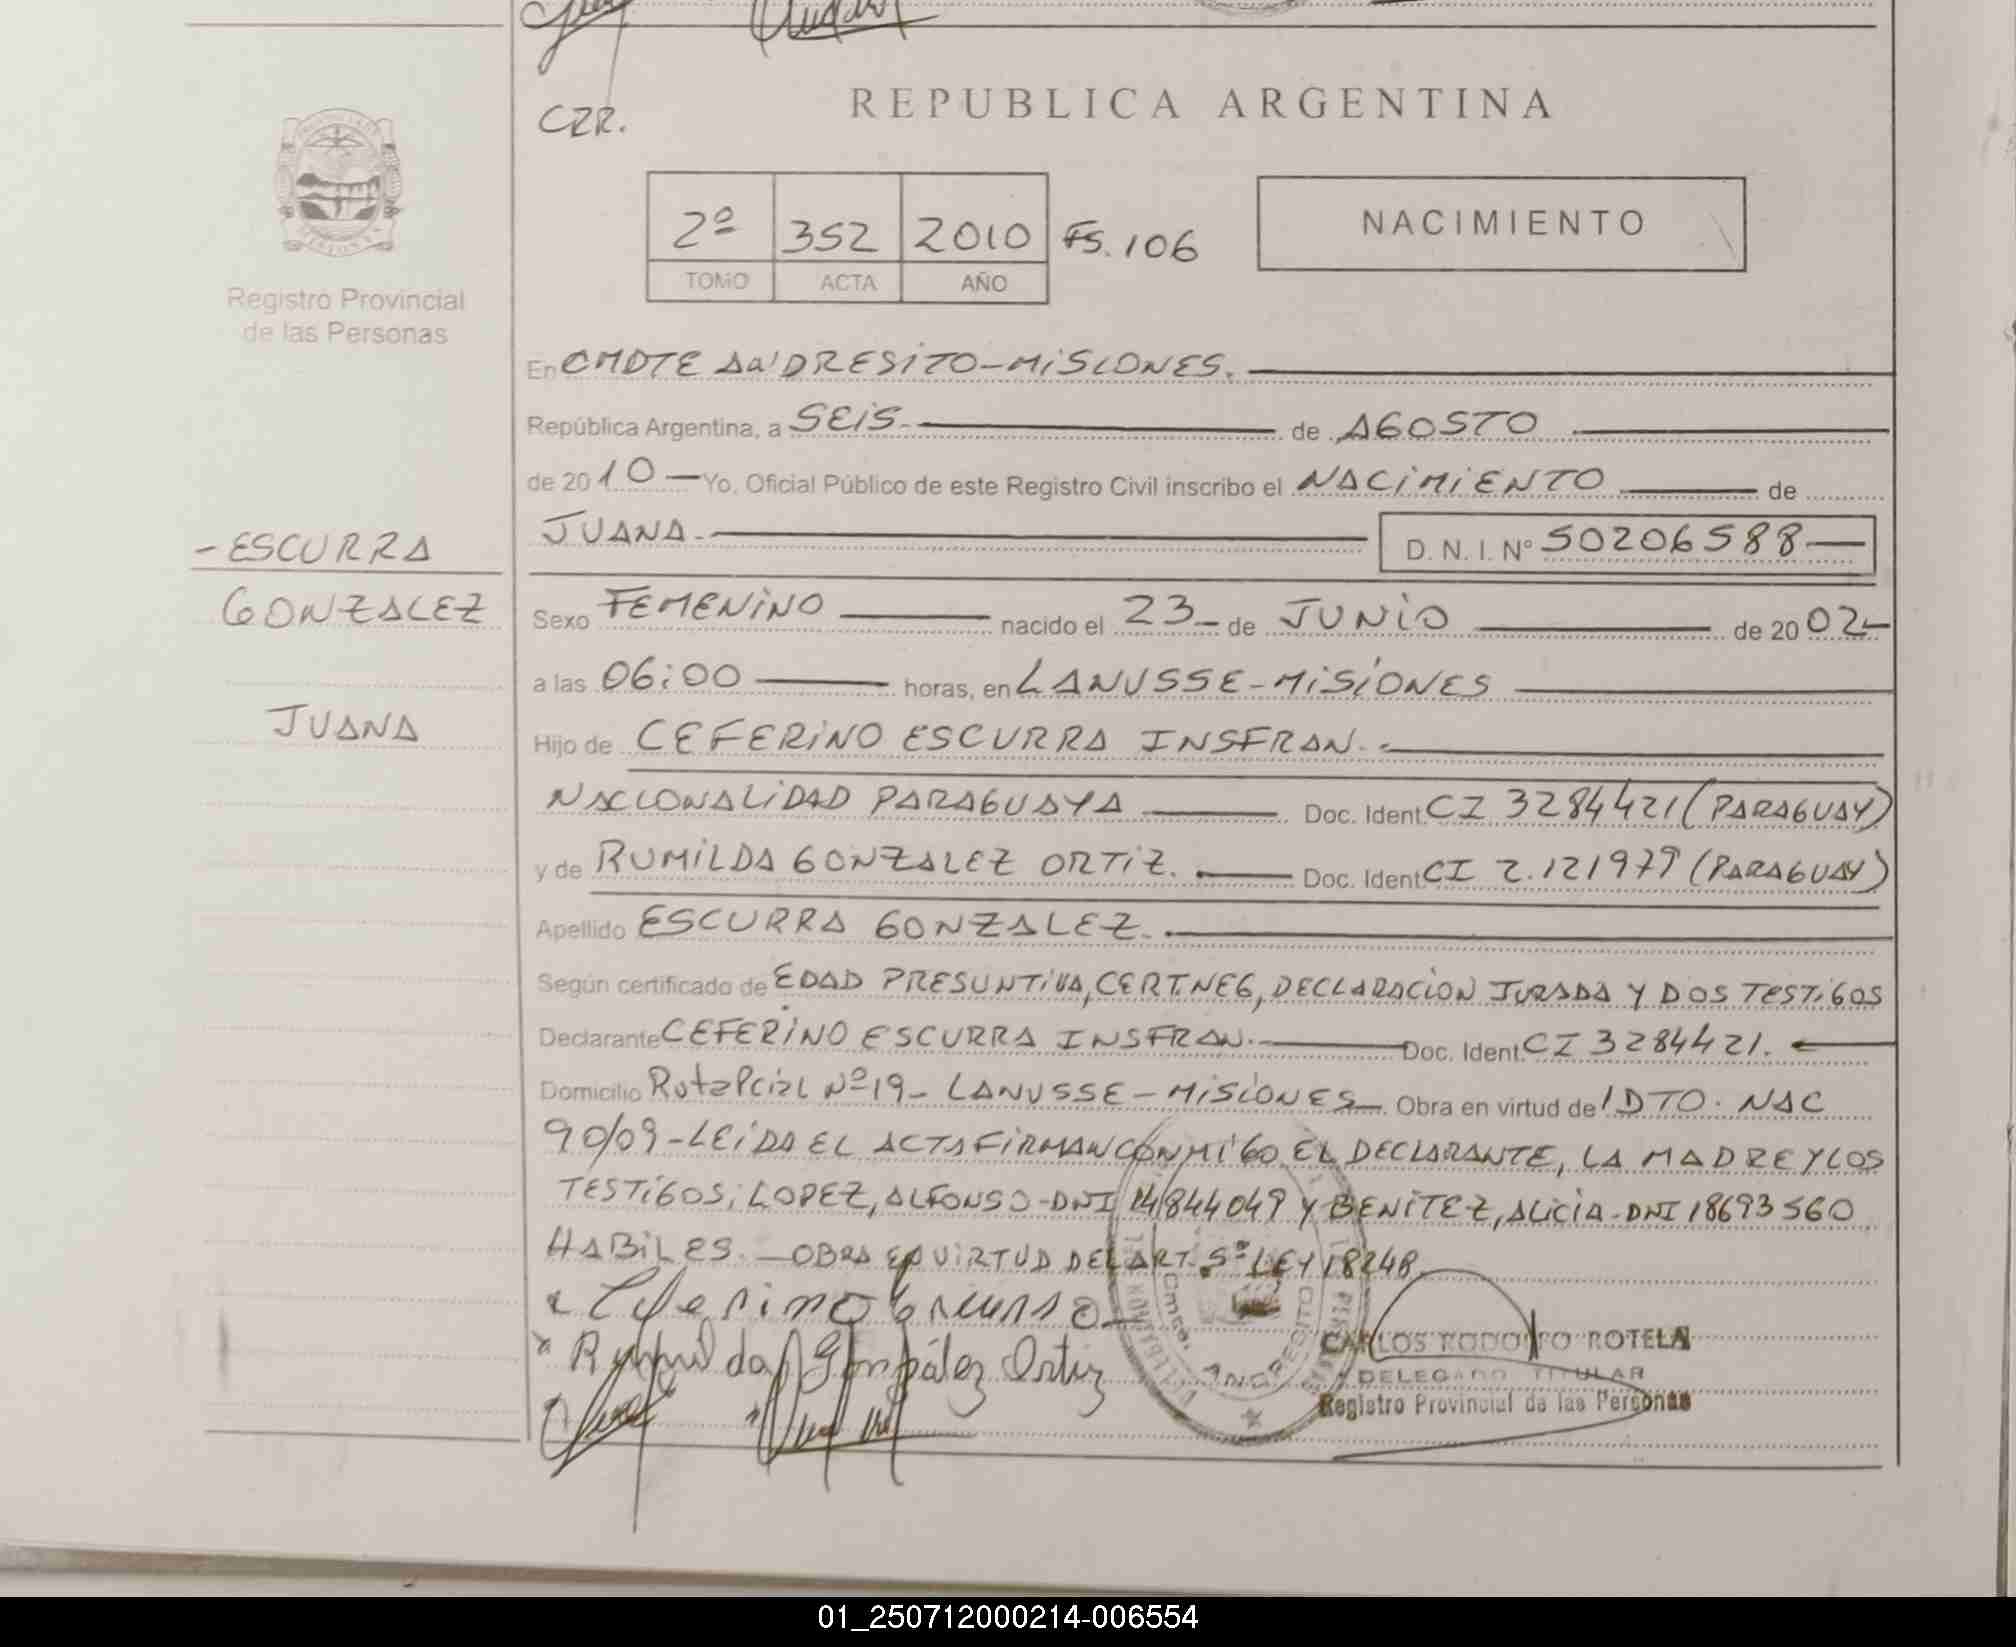 CZR.
REPUBLICA ARGENTINA
2º 352 2010 FS. 106
TOMO ACTA AÑO
NACIMIENTO
Registro Provincial
de las Personas
En CMDTE ANDRESITO-MISIONES.
República Argentina, a SEIS. de AGOSTO
de 2010 Yo, Oficial Público de este Registro Civil inscribo el NACIMIENTO de
JUANA. D. N. I. Nº 50206588
- ESCURRA
GONZALEZ
JUANA
Sexo FEMENINO nacido el 23 de JUNIO de 2002
a las 06:00 horas, en LANUSSE-MISIONES
Hijo de CEFERINO ESCURRA INSFRAN.
NACIONALIDAD PARAGUAYA Doc. Ident. CI 3284421 (PARAGUAY)
y de RUMILDA GONZALEZ ORTIZ. Doc. Ident. CI 2.121979 (PARAGUAY)
Apellido ESCURRA GONZALEZ.
Según certificado de EDAD PRESUNTIVA, CERT.NEG, DECLARACION JURADA Y DOS TESTIGOS
Declarante CEFERINO ESCURRA INSFRAN. Doc. Ident. CI 3284421.
Domicilio Ruta Pcial Nº 19 - LANUSSE - MISIONES Obra en virtud de DTO. NAC
90/09 - LEIDA EL ACTA FIRMAN CONMIGO EL DECLARANTE, LA MADRE Y LOS
TESTIGOS; LOPEZ, ALFONSO - DNI 14844049 Y BENITEZ, ALICIA - DNI 18693560
HABILES. OBRA EN VIRTUD DEL ART. 5º LEY 18248
Rumilda González Ortiz
CMTE. ANDRESITO
CARLOS RODOLFO ROTELA
DELEGADO TITULAR
Registro Provincial de las Personas
01_250712000214-006554